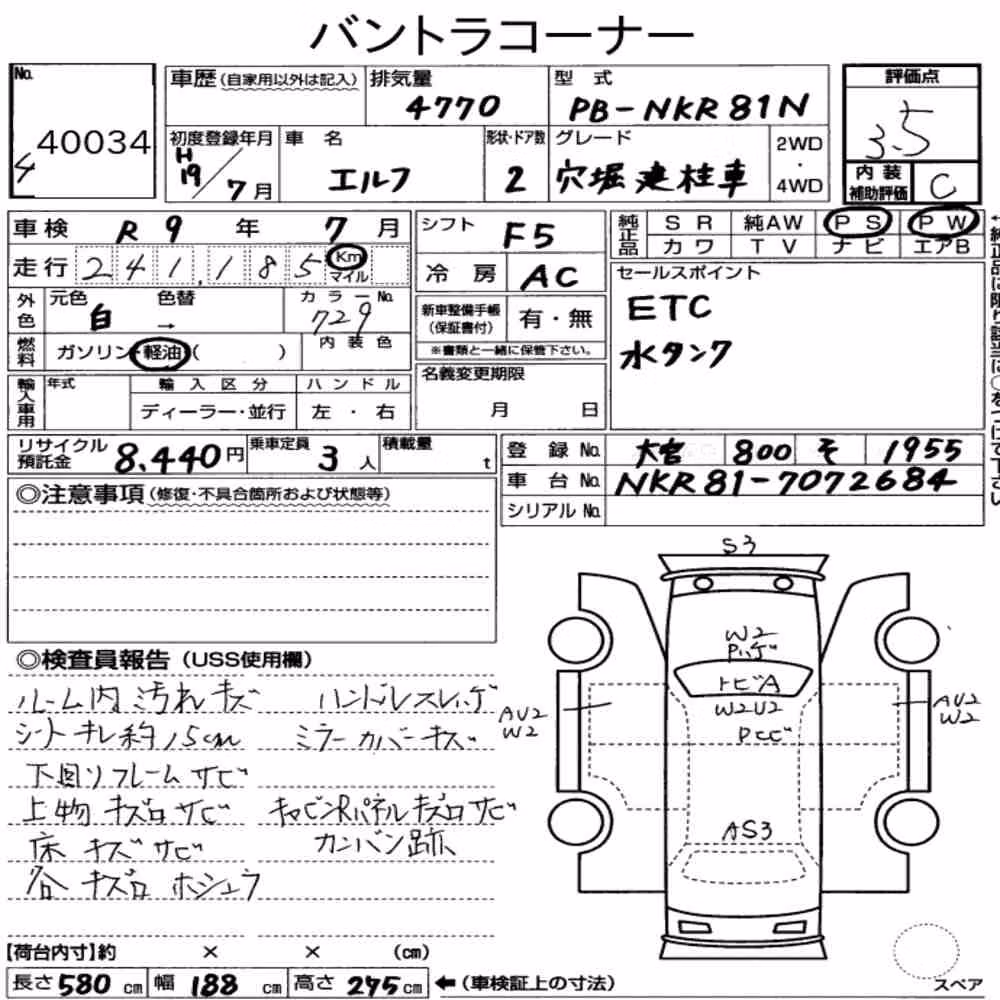 バントラコーナー
No. 40034
4
車歴(自家用以外は記入)
排気量 4770
型式 PB-NKR81N
評価点 3.5
初度登録年月 H19/7月
車名 エルフ
形状・ドア数 2
グレード 穴堀建柱車
2WD・4WD
内装補助評価 C
車検 R9年7月
シフト F5
純正品 SR 純AW PS PW
カワ TV ナビ エアB
走行 241,185 Km マイル
冷房 AC
セールスポイント
ETC
水タンク
外色 元色 白 色替 →
カラーNo. 729
新車整備手帳(保証書付) 有・無
※書類と一緒に保管下さい。
燃料 ガソリン・軽油( )
内装色
名義変更期限
月 日
輸入車用 年式 輸入区分 ハンドル
ディーラー・並行 左・右
リサイクル預託金 8,440円
乗車定員 3人
積載量 t
登録No. 大宮 800 そ 1955
車台No. NKR81-7072684
シリアルNo.
◎注意事項(修復・不具合箇所および状態等)
◎検査員報告(USS使用欄)
ルーム内汚れキズ ハンドルスレハゲ
シートキレ約15cm ミラーカバーキズ
下回リフレームサビ
上物キズロサビ キャビンRパネルキズロサビ
床キズサビ カンバン跡
各キズロホシュラ
S3
W2
Pハゲ
トビA
W2U2
Pサビ
AU2
W2
AU2
W2
AS3
【荷台内寸】約 × × (cm)
長さ580cm 幅188cm 高さ275cm ←(車検証上の寸法)
スペア